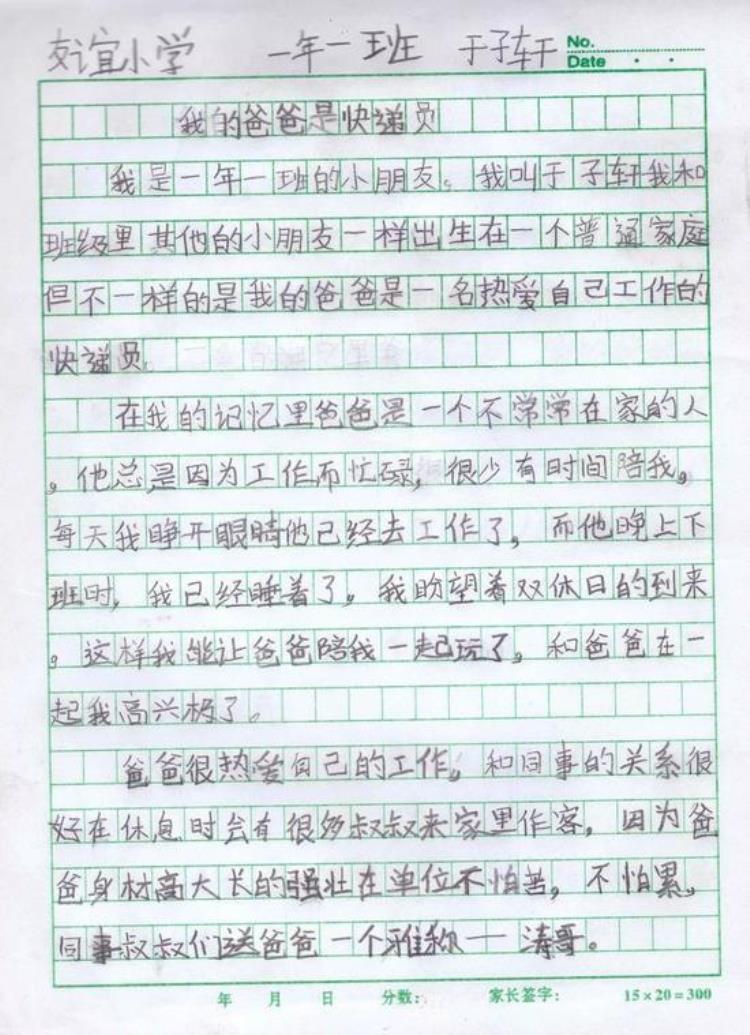 友谊小学 一年一班 于子轩 No.
Date
我的爸爸是快递员
我是一年一班的小朋友。我叫于子轩我和
班级里其他的小朋友一样出生在一个普通家庭
但不一样的是我的爸爸是一名热爱自己工作的
快递员。
在我的记忆里爸爸是一个不常常在家的人
。他总是因为工作而忙碌，很少有时间陪我。
每天我睁开眼睛他已经去工作了，而他晚上下
班时，我已经睡着了。我盼望着双休日的到来
。这样我能让爸爸陪我一起玩了。和爸爸在一
起我高兴极了。
爸爸很热爱自己的工作。和同事的关系很
好在休息时会有很多叔叔来家里作客，因为爸
爸身材高大长的强壮在单位不怕苦，不怕累。
同事叔叔们送爸爸一个雅称一涛哥。
年 月 日 分数： 家长签字： 15×20=300